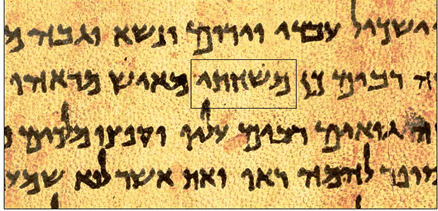 ישכיל עבדי וירום ונשא וגבה מ
ה רבים כן משחתי מאיש מראהו
ה גואים רבים עליו וקפצו מלכים
ופר להמה ראו ואת אשר לוא שמע